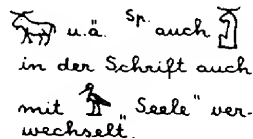 u. ä. Sp. auch
in der Schrift auch
mit Seele" ver-
wechselt.